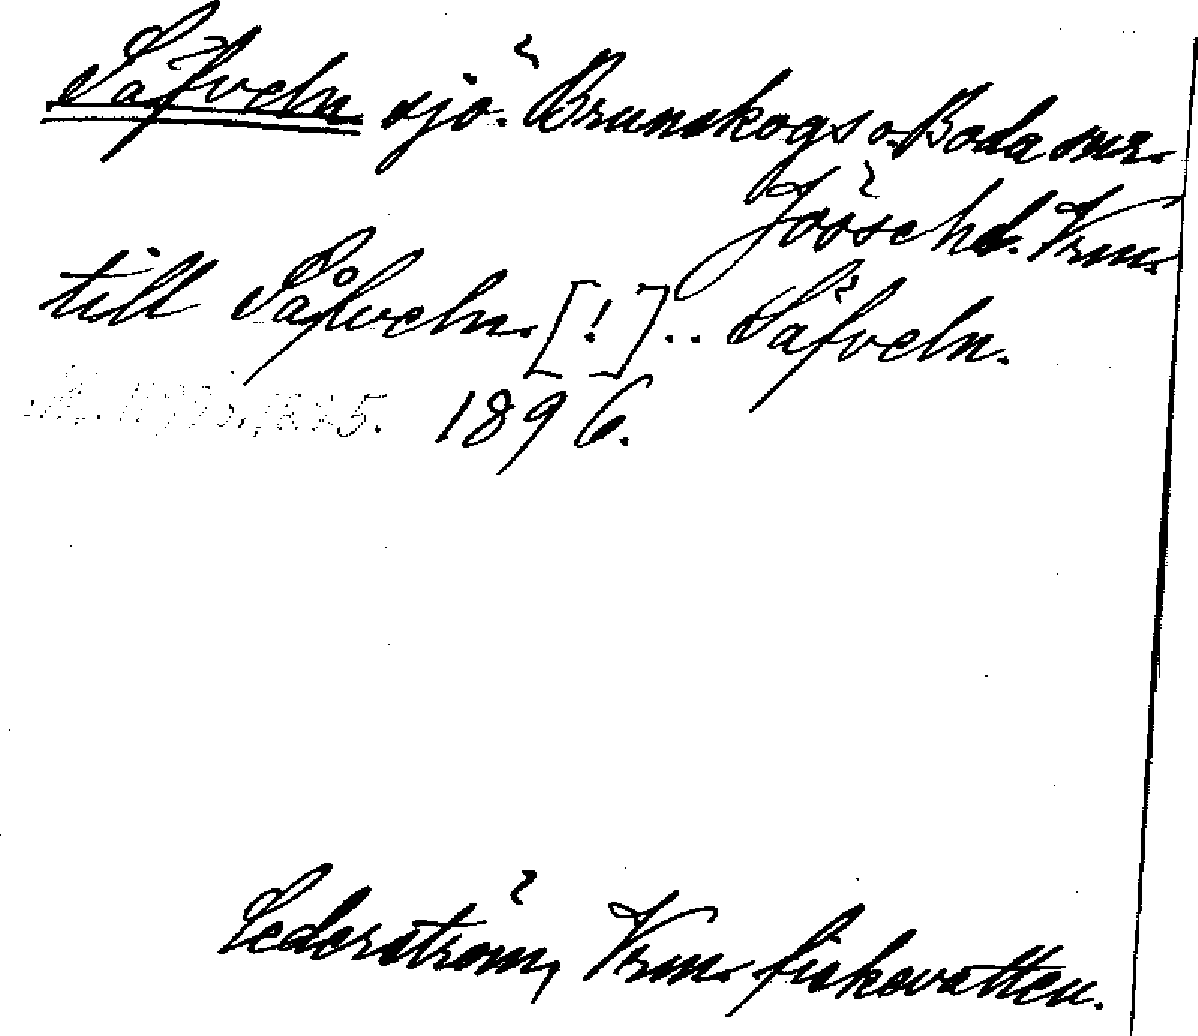 Säfveln sjö. Brunskogs o. Boda snr.
Jösse hd. Vrm.
till Såfveln. [!] .. Säfveln.
1896.
Cederström, Vrm. fiskevatten.